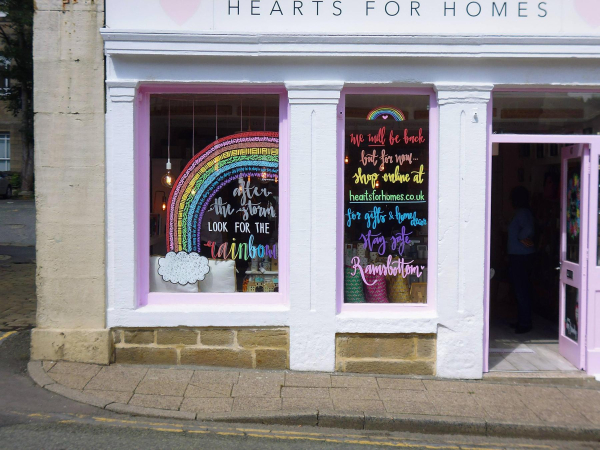 HEARTS FOR HOMES
after
the storm
LOOK FOR THE
rainbow
we will be back
but for now...
shop online at
heartsforhomes.co.uk
for gifts & home decor
Stay safe
Ramsbottom